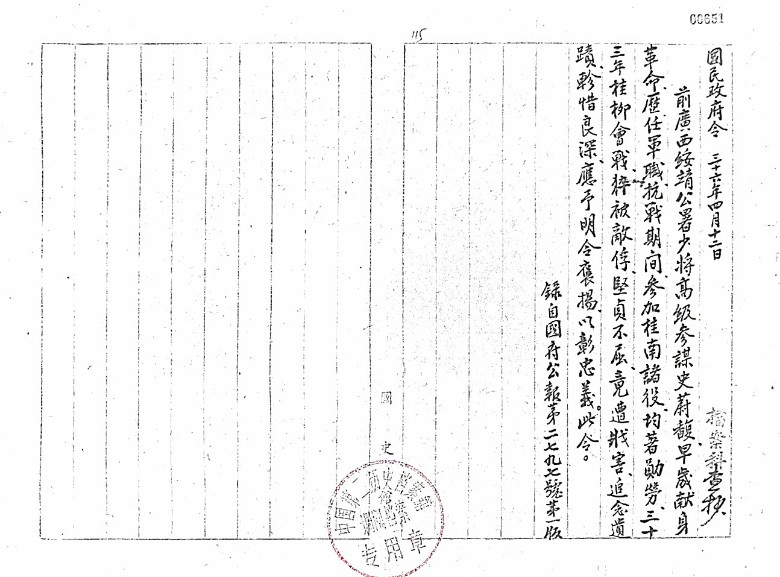 00851
115
國民政府令 三十六年四月十二日
檔案科查抄
前廣西綏靖公署少將高級參謀史蔚馥早歲献身
革命歷任軍職抗戰期间參加桂南諸役均著勛勞三十
三年桂柳會戰猝被敵俘堅貞不屈竟遭戕害追念遺
蹟軫惜良深應予明令褒揚以彰忠義此令。
錄自國府公報第二七九七號第一版
國史
中國第二歷史檔案館
专用章